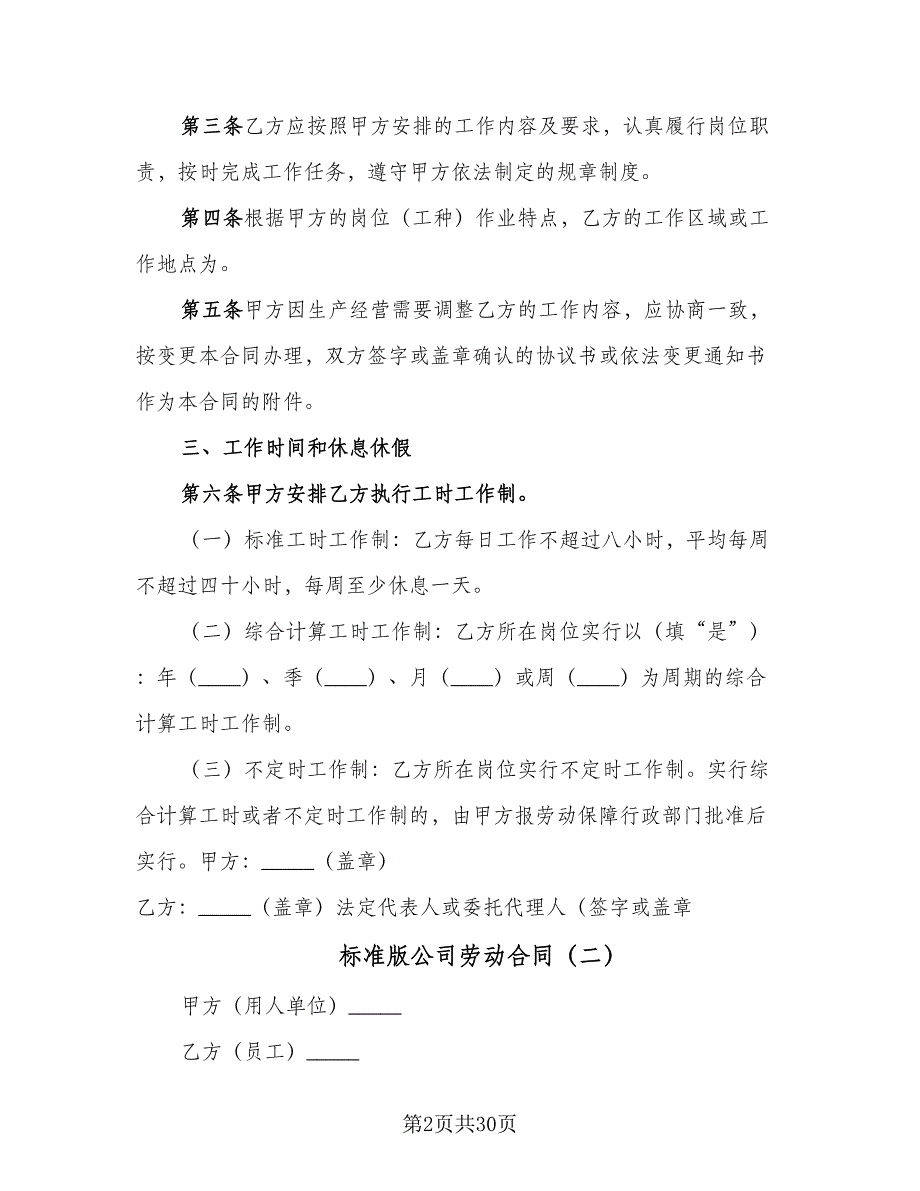 第三条乙方应按照甲方安排的工作内容及要求，认真履行岗位职
责，按时完成工作任务，遵守甲方依法制定的规章制度。
第四条根据甲方的岗位（工种）作业特点，乙方的工作区域或工
作地点为。
第五条甲方因生产经营需要调整乙方的工作内容，应协商一致，
按变更本合同办理，双方签字或盖章确认的协议书或依法变更通知书
作为本合同的附件。
三、工作时间和休息休假
第六条甲方安排乙方执行工时工作制。
（一）标准工时工作制：乙方每日工作不超过八小时，平均每周
不超过四十小时，每周至少休息一天。
（二）综合计算工时工作制：乙方所在岗位实行以（填“是”）
：年（____）、季（____）、月（____）或周（____）为周期的综合
计算工时工作制。
（三）不定时工作制：乙方所在岗位实行不定时工作制。实行综
合计算工时或者不定时工作制的，由甲方报劳动保障行政部门批准后
实行。甲方：_____（盖章）
乙方：_____（盖章）法定代表人或委托代理人（签字或盖章
标准版公司劳动合同（二）
甲方（用人单位）_____
乙方（员工）_____
第2页共30页